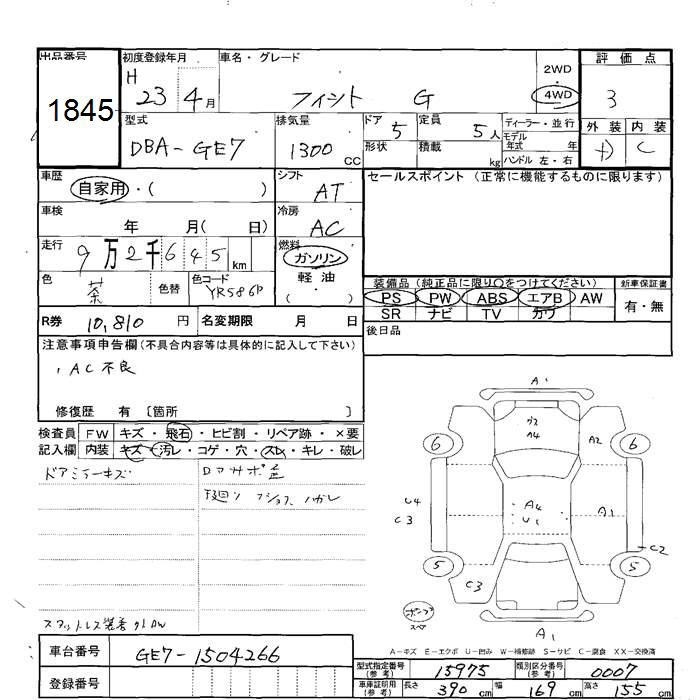 出品番号
1845
初度登録年月
H 23 4月
車名・グレード
フィット G
2WD
・
4WD
評価点
3
外装 内装
C
型式
DBA-GE7
排気量
1300 CC
ドア 5
定員 5人
形状
積載 kg
ディーラー・並行
モデル
年式 年
ハンドル 左・右
車歴
自家用・( )
シフト
AT
セールスポイント(正常に機能するものに限ります)
車検
年 月( 日)
冷房
AC
走行
9万2千645km
燃料
ガソリン
軽油
( )
色
茶
色替
色コード
YR586P
装備品(純正品に限り○をつけてください)
PS PW ABS エアB AW
SR ナビ TV カワ
新車保証書
有・無
R券 10,810 円
名変期限 月 日
後日品
注意事項申告欄(不具合内容等は具体的に記入して下さい)
AC不良
修復歴 有 〔箇所 〕
検査員 FW キズ・飛石・ヒビ割・リペア跡・×要
記入欄 内装 キズ・汚レ・コゲ・穴・スレ・キレ・破レ
ドアミラーキズ
A1
クス
A4
A2
6
6
U4
C3
A4
U1
A1
C2
5
5
C3
A1
A-キズ E-エクボ U-凹み W-補修跡 S-サビ C-腐食 XX-交換済
車台番号 GE7-1504266
登録番号
型式指定番号
(参考)
15975
類別区分番号
(参考)
0007
車庫証明用
(参考)
長さ 390cm 幅 169cm 高さ 155cm